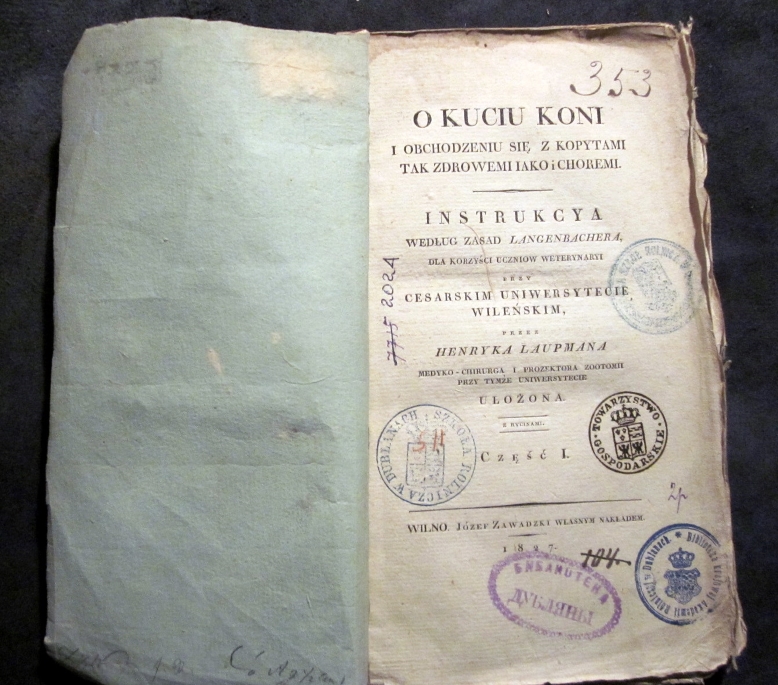 353
O KUCIU KONI
I OBCHODZENIU SIĘ Z KOPYTAMI
TAK ZDROWEMI IAKO i CHOREMI.
INSTRUKCYA
WEDŁUG ZASAD LANGENBACHERA,
DLA KORZYŚCI UCZNIOW WETERYNARYI
PRZY
CESARSKIM UNIWERSYTECIE
WILEŃSKIM,
PRZEZ
HENRYKA LAUPMANA
MEDYKO-CHIRURGA I PROZEKTORA ZOOTOMII
PRZY TYMŻE UNIWERSYTECIE
UŁOŻONA.
Z RYCINAMI.
CZĘŚĆ I.
WILNO. JÓZEF ZAWADZKI WŁASNYM NAKŁADEM.
1827.
104.
2024
SZKOŁA ROLNICZA W DUBLANACH
TOWARZYSTWO GOSPODARSKIE
БИБЛИОТЕКА
ДУБЛЯНЫ
Biblioteka Krajowej Akademii Rolniczej w Dublanach